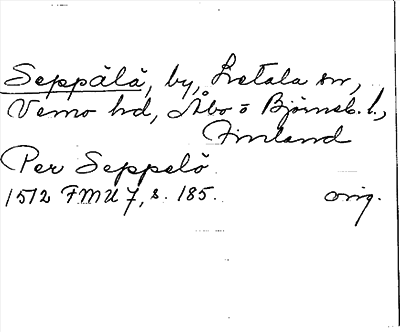 Seppälä, by, Lretala sn,
Vemo hd, Åbo o Björneb. l.,
Finland
Per Seppelö
1512 FMU 7, s. 185. orig.